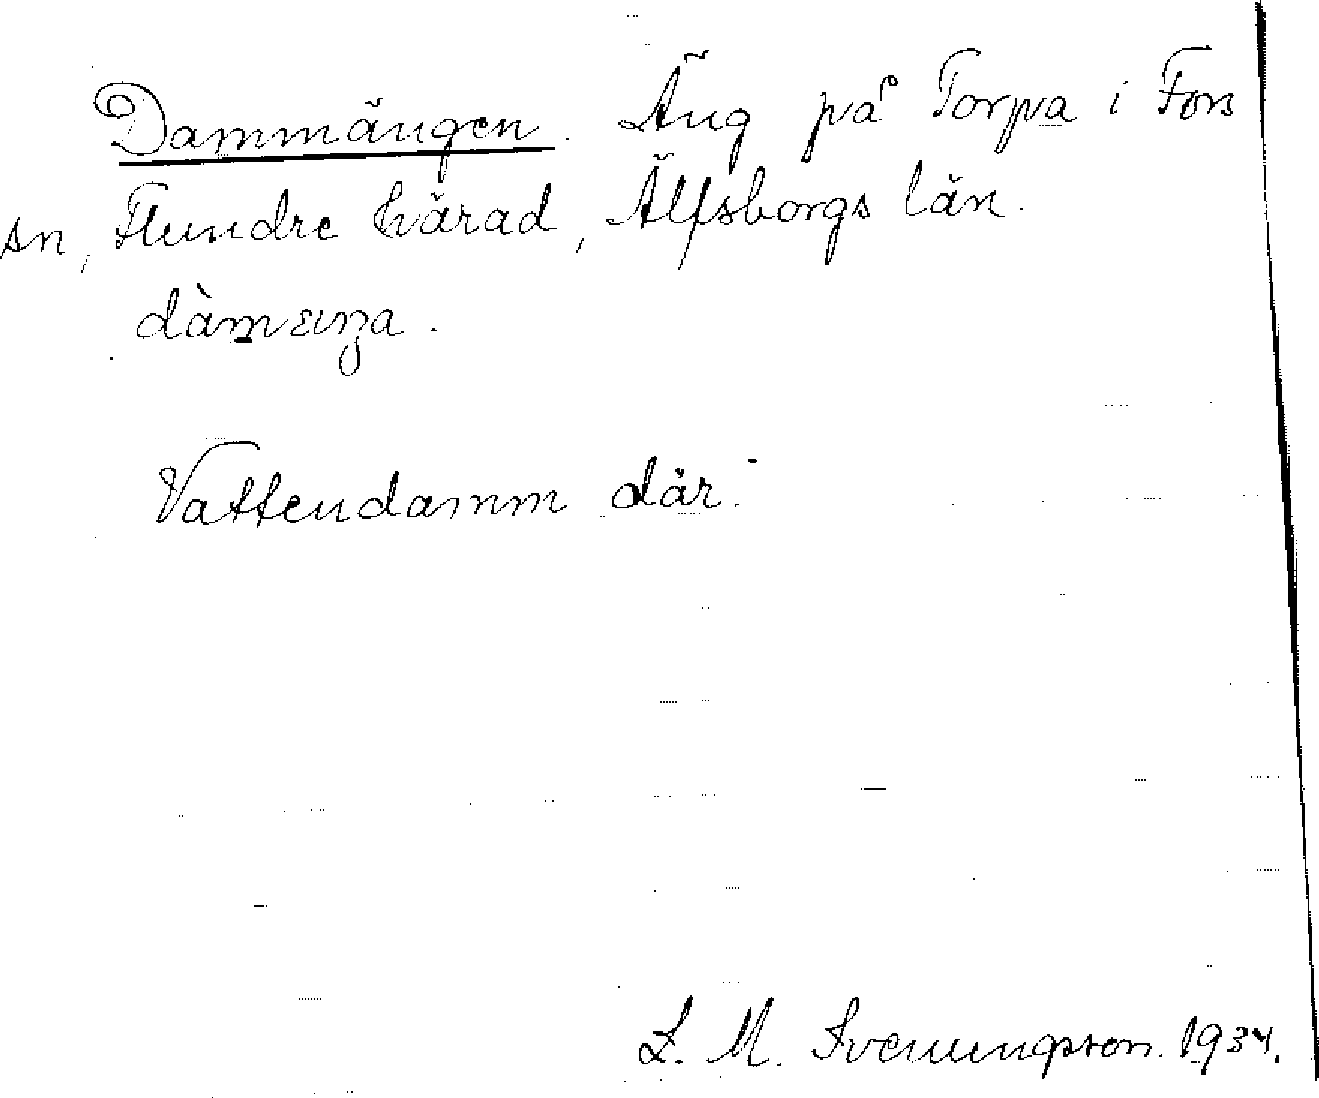 Dammängen. Äng på Torpa i Fors
sn, Flundre härad, Älfsborgs län.
dàmæŋa.
Vattendamm där.
L. M. Svenungsson. 1934.